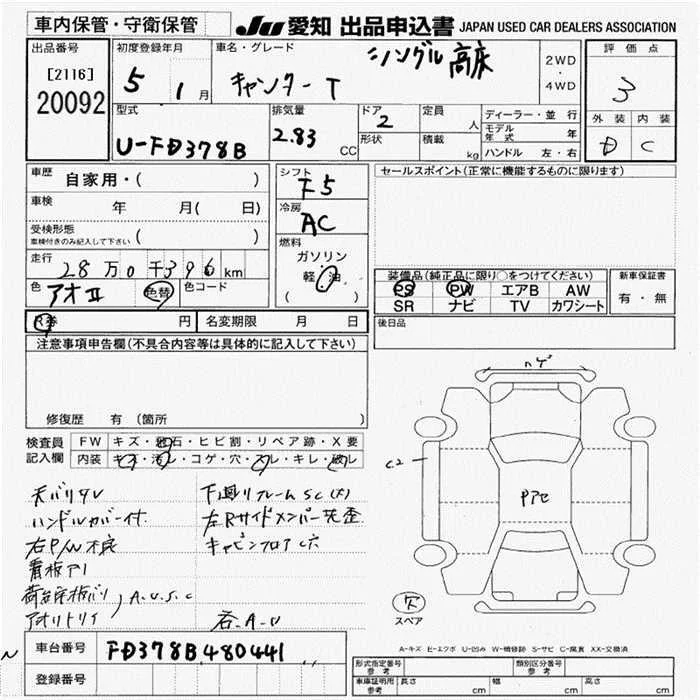 車内保管・守衛保管 JU 愛知 出品申込書 JAPAN USED CAR DEALERS ASSOCIATION
出品番号
[2116]
20092
初度登録年月
5 1 月
車名・グレード
キャンターT シングル高床
2WD
・
4WD
評価点
3
外装 内装
D C
型式
U-FD378B
排気量
2.83 CC
ドア
2
形状
定員
人
積載
kg
ディーラー・並行
モデル年式 年
ハンドル 左・右
車歴 自家用・( )
車検 年 月( 日)
受検形態
車検付きのみ記入して下さい ( )
走行 28万0千396km
色 アオII 色替 色コード
R券 円 名変期限 月 日
シフト
F5
冷房
AC
燃料
ガソリン
軽油
( )
セールスポイント(正常に機能するものに限ります)
装備品(純正品に限り○をつけてください)
PS PW エアB AW
SR ナビ TV カワシート
新車保証書
有・無
後日品
注意事項申告欄(不具合内容等は具体的に記入して下さい)
修復歴 有 (箇所 )
検査員記入欄
FW キズ・飛石・ヒビ割・リペア跡・X要
内装 キズ・汚レ・コゲ・穴・スレ・キレ・破レ
天バリタレ
ハンドルカバー付
右P/W不良
看板アリ
A.U.S.C
下廻りフレームSC(大)
左Rサイドメンバー先歪
キャビンフロア穴
各A.U
ハゲ
C2
Pアセ
スペア
A-キズ E-エクボ U-凹み W-補修跡 S-サビ C-腐食 XX-交換済
車台番号 FD378B480441
登録番号
形式指定番号
参考
類別区分番号
参考
車庫証明用
参考
長さ cm 幅 cm 高さ cm